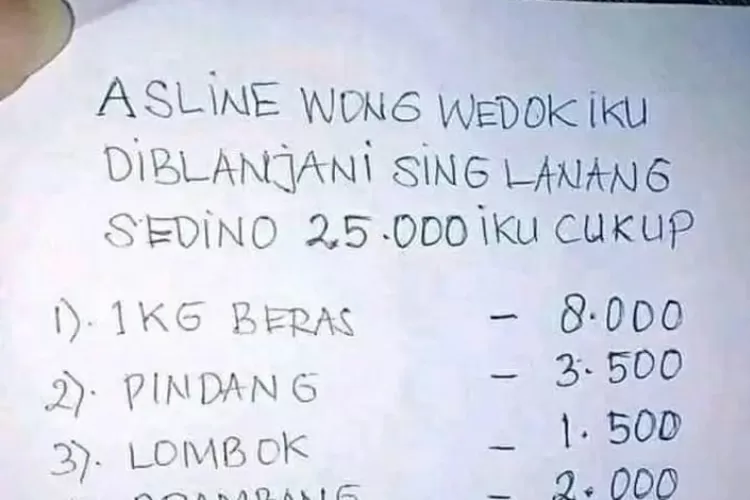 ASLINE WONG WEDOK IKU
DIBLANJANI SING LANANG
SEDINO 25.000 IKU CUKUP
1). 1KG BERAS – 8.000
2). PINDANG – 3.500
3). LOMBOK – 1.500
– 2.000